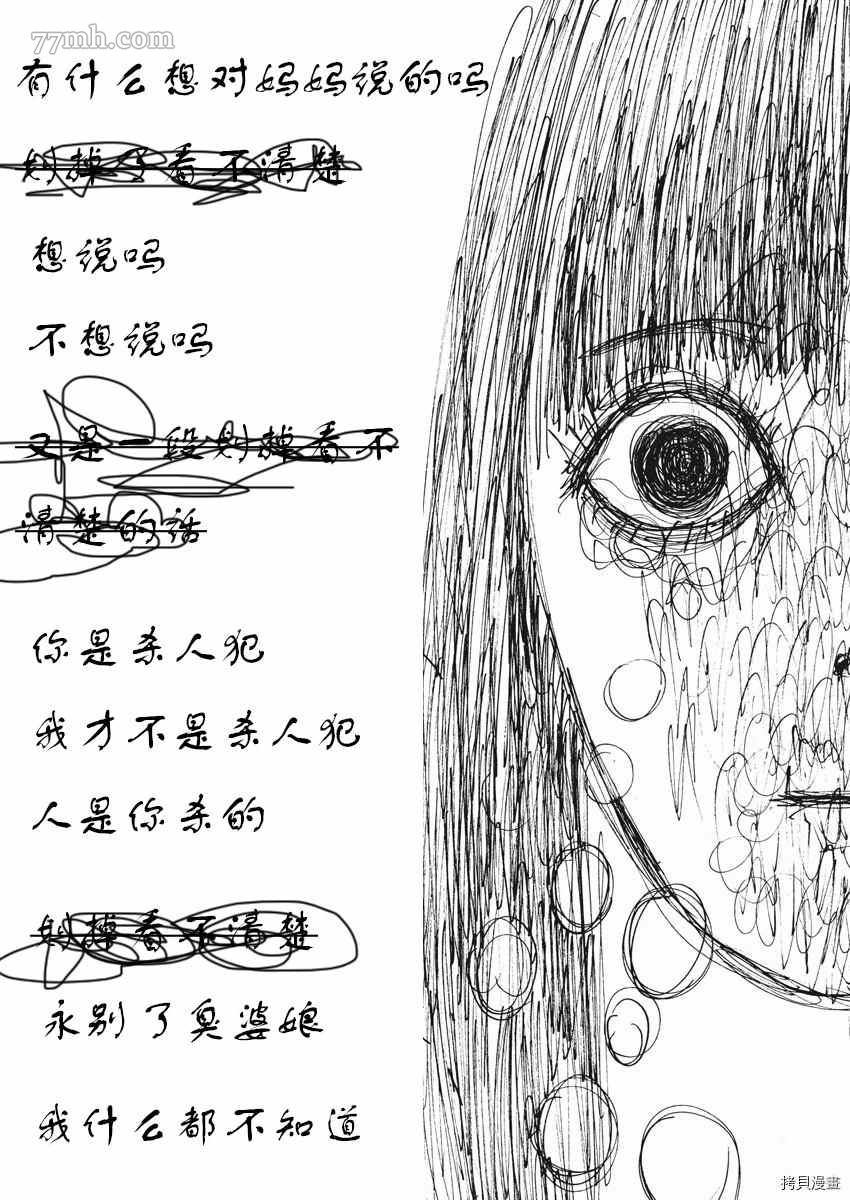 77mh.com
有什么想对妈妈说的吗
划掉了看不清楚
想说吗
不想说吗
又是一段划掉看不
清楚的话
你是杀人犯
我才不是杀人犯
人是你杀的
划掉看不清楚
永别了臭婆娘
我什么都不知道
拷貝漫畫